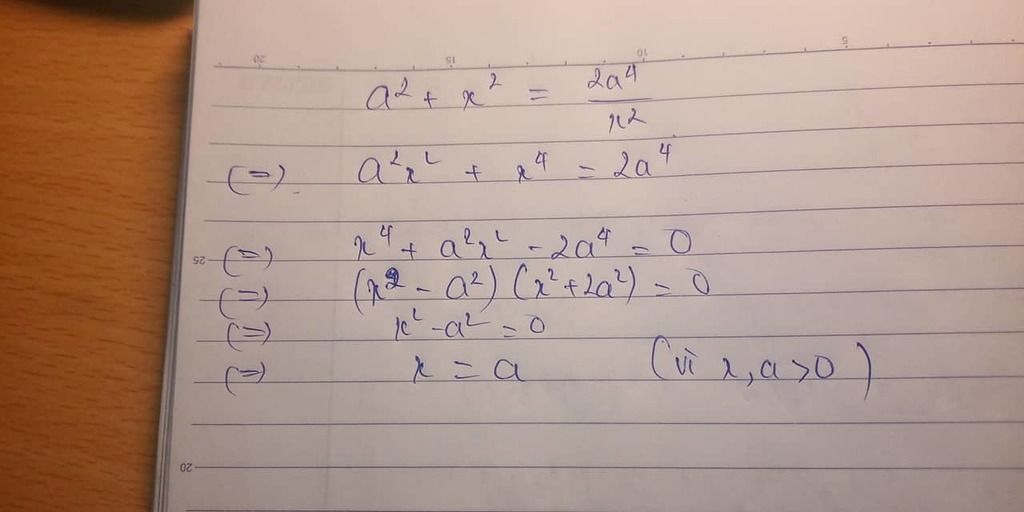 20 15 10 5
a² + x² = 2a⁴/x²
(=) a²x² + x⁴ = 2a⁴
25 (=) x⁴ + a²x² - 2a⁴ = 0
(=) (x² - a²) (x² + 2a²) = 0
(=) x² - a² = 0
(=) x = a (vì x, a > 0)
20